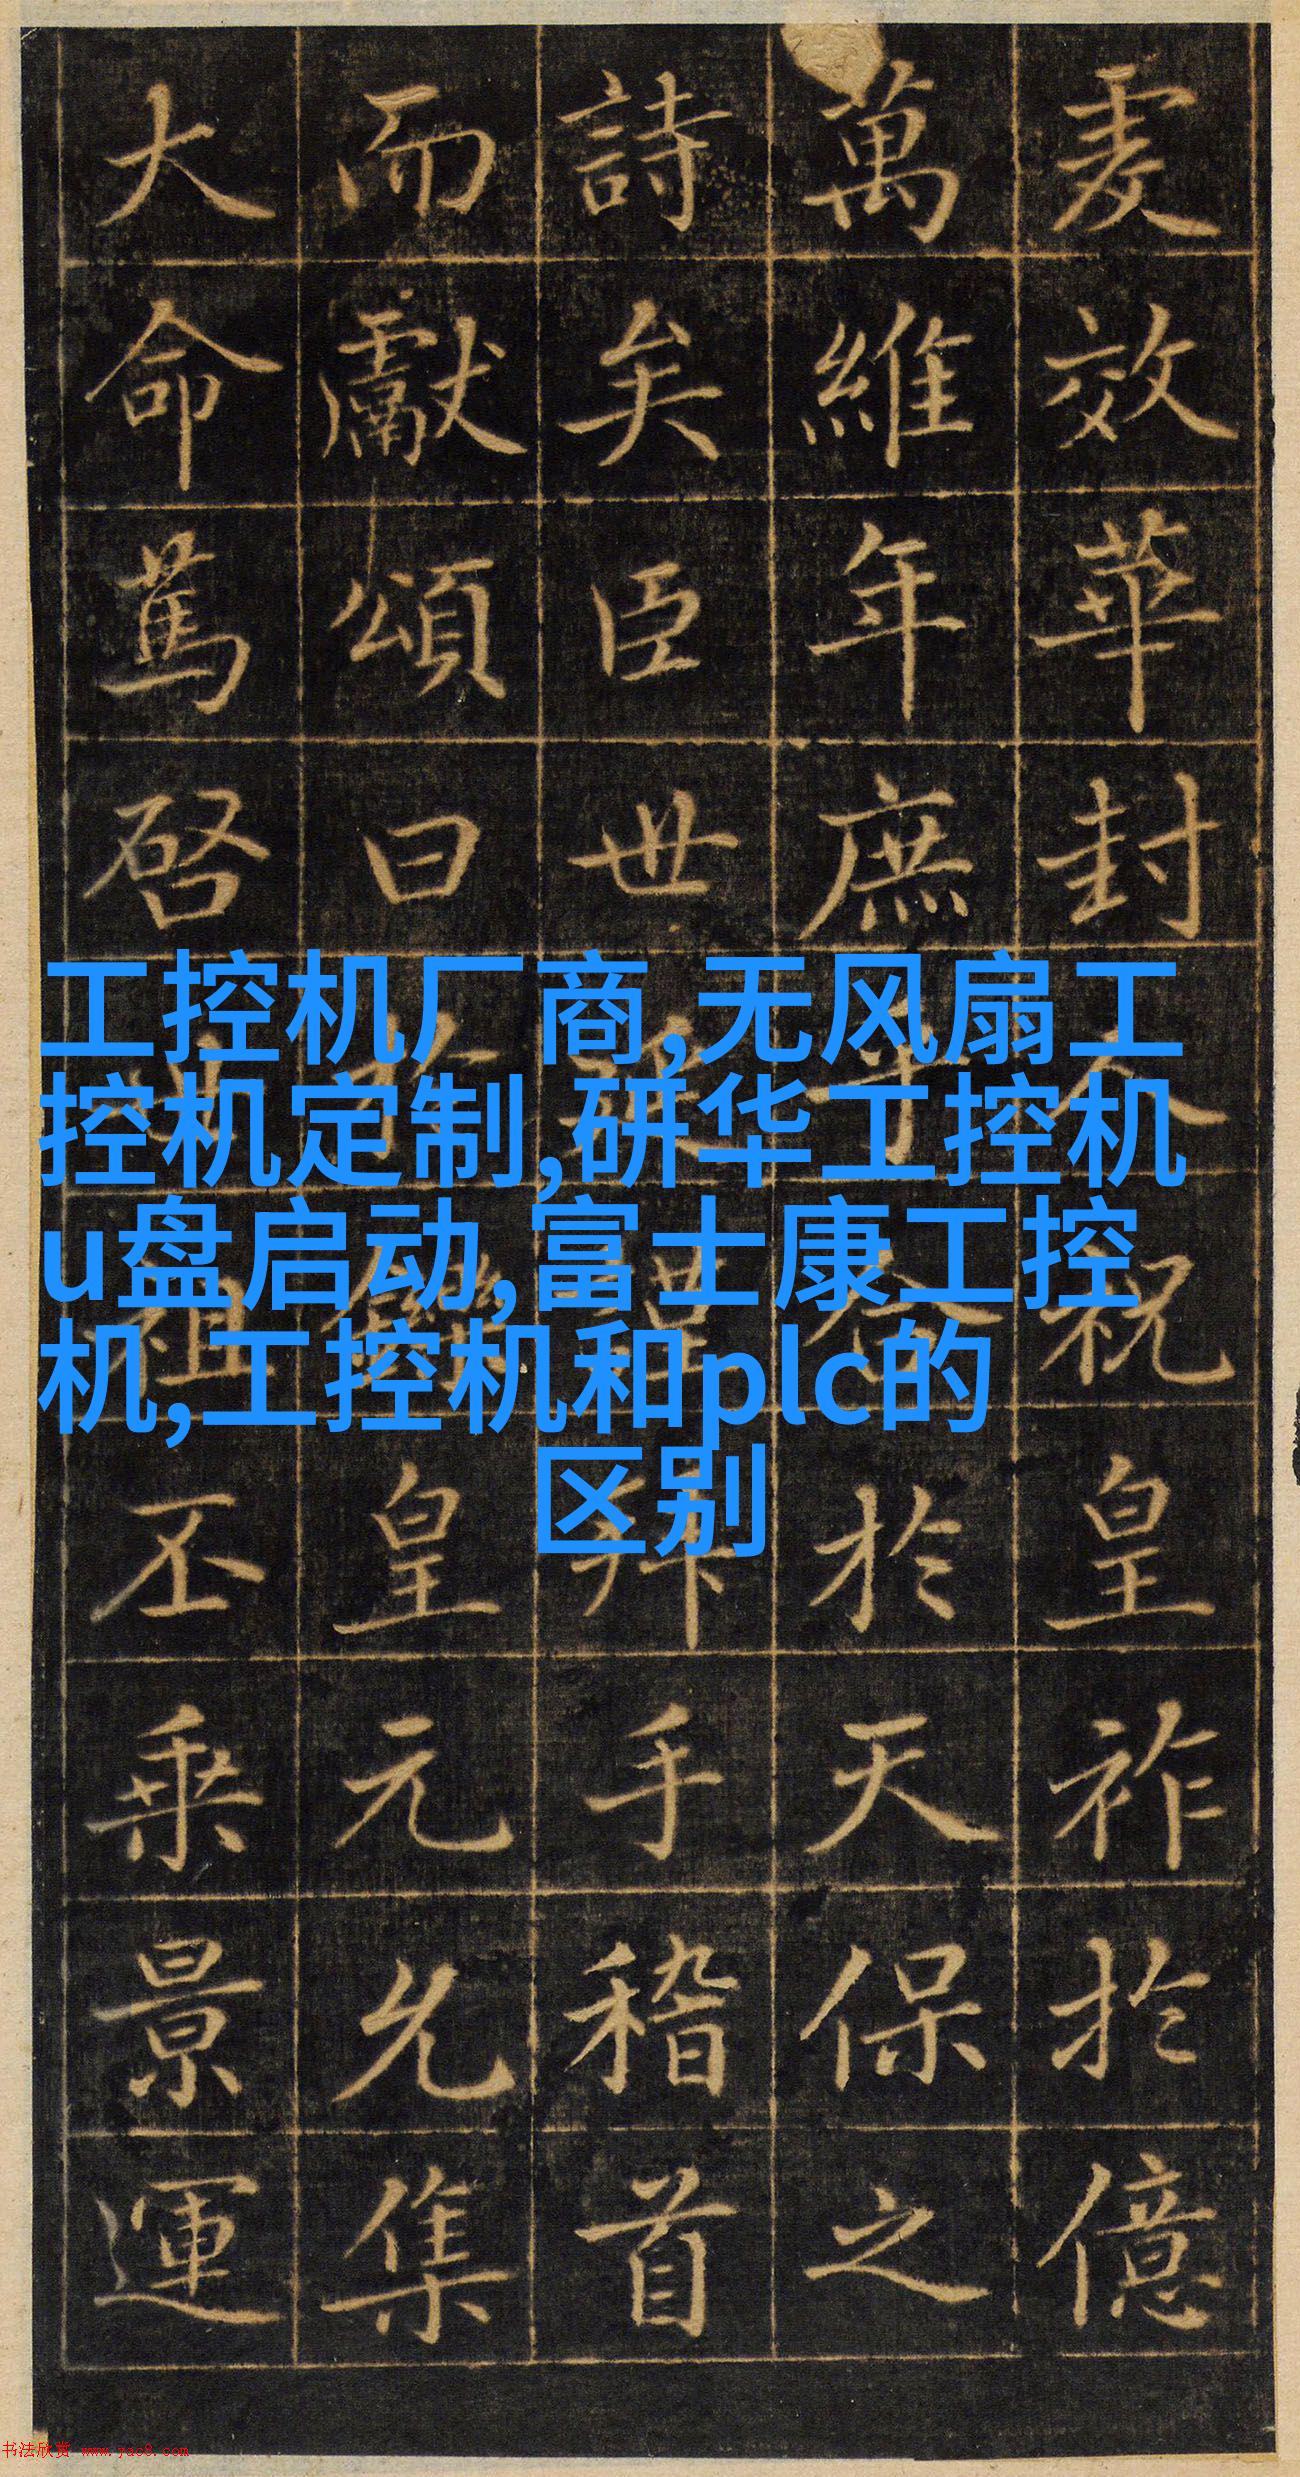 爰效華封人祝皇祚於億
萬維年庶乎於天保之
詩矣臣世拜手稽首
而獻頌曰於皇元允集
大命篤啓祖丕乘景運
工控机厂商,无风扇工
控机定制,研华工控机
u盘启动,富士康工控
机,工控机和plc的
区别
书法欣赏 www.yac8.com